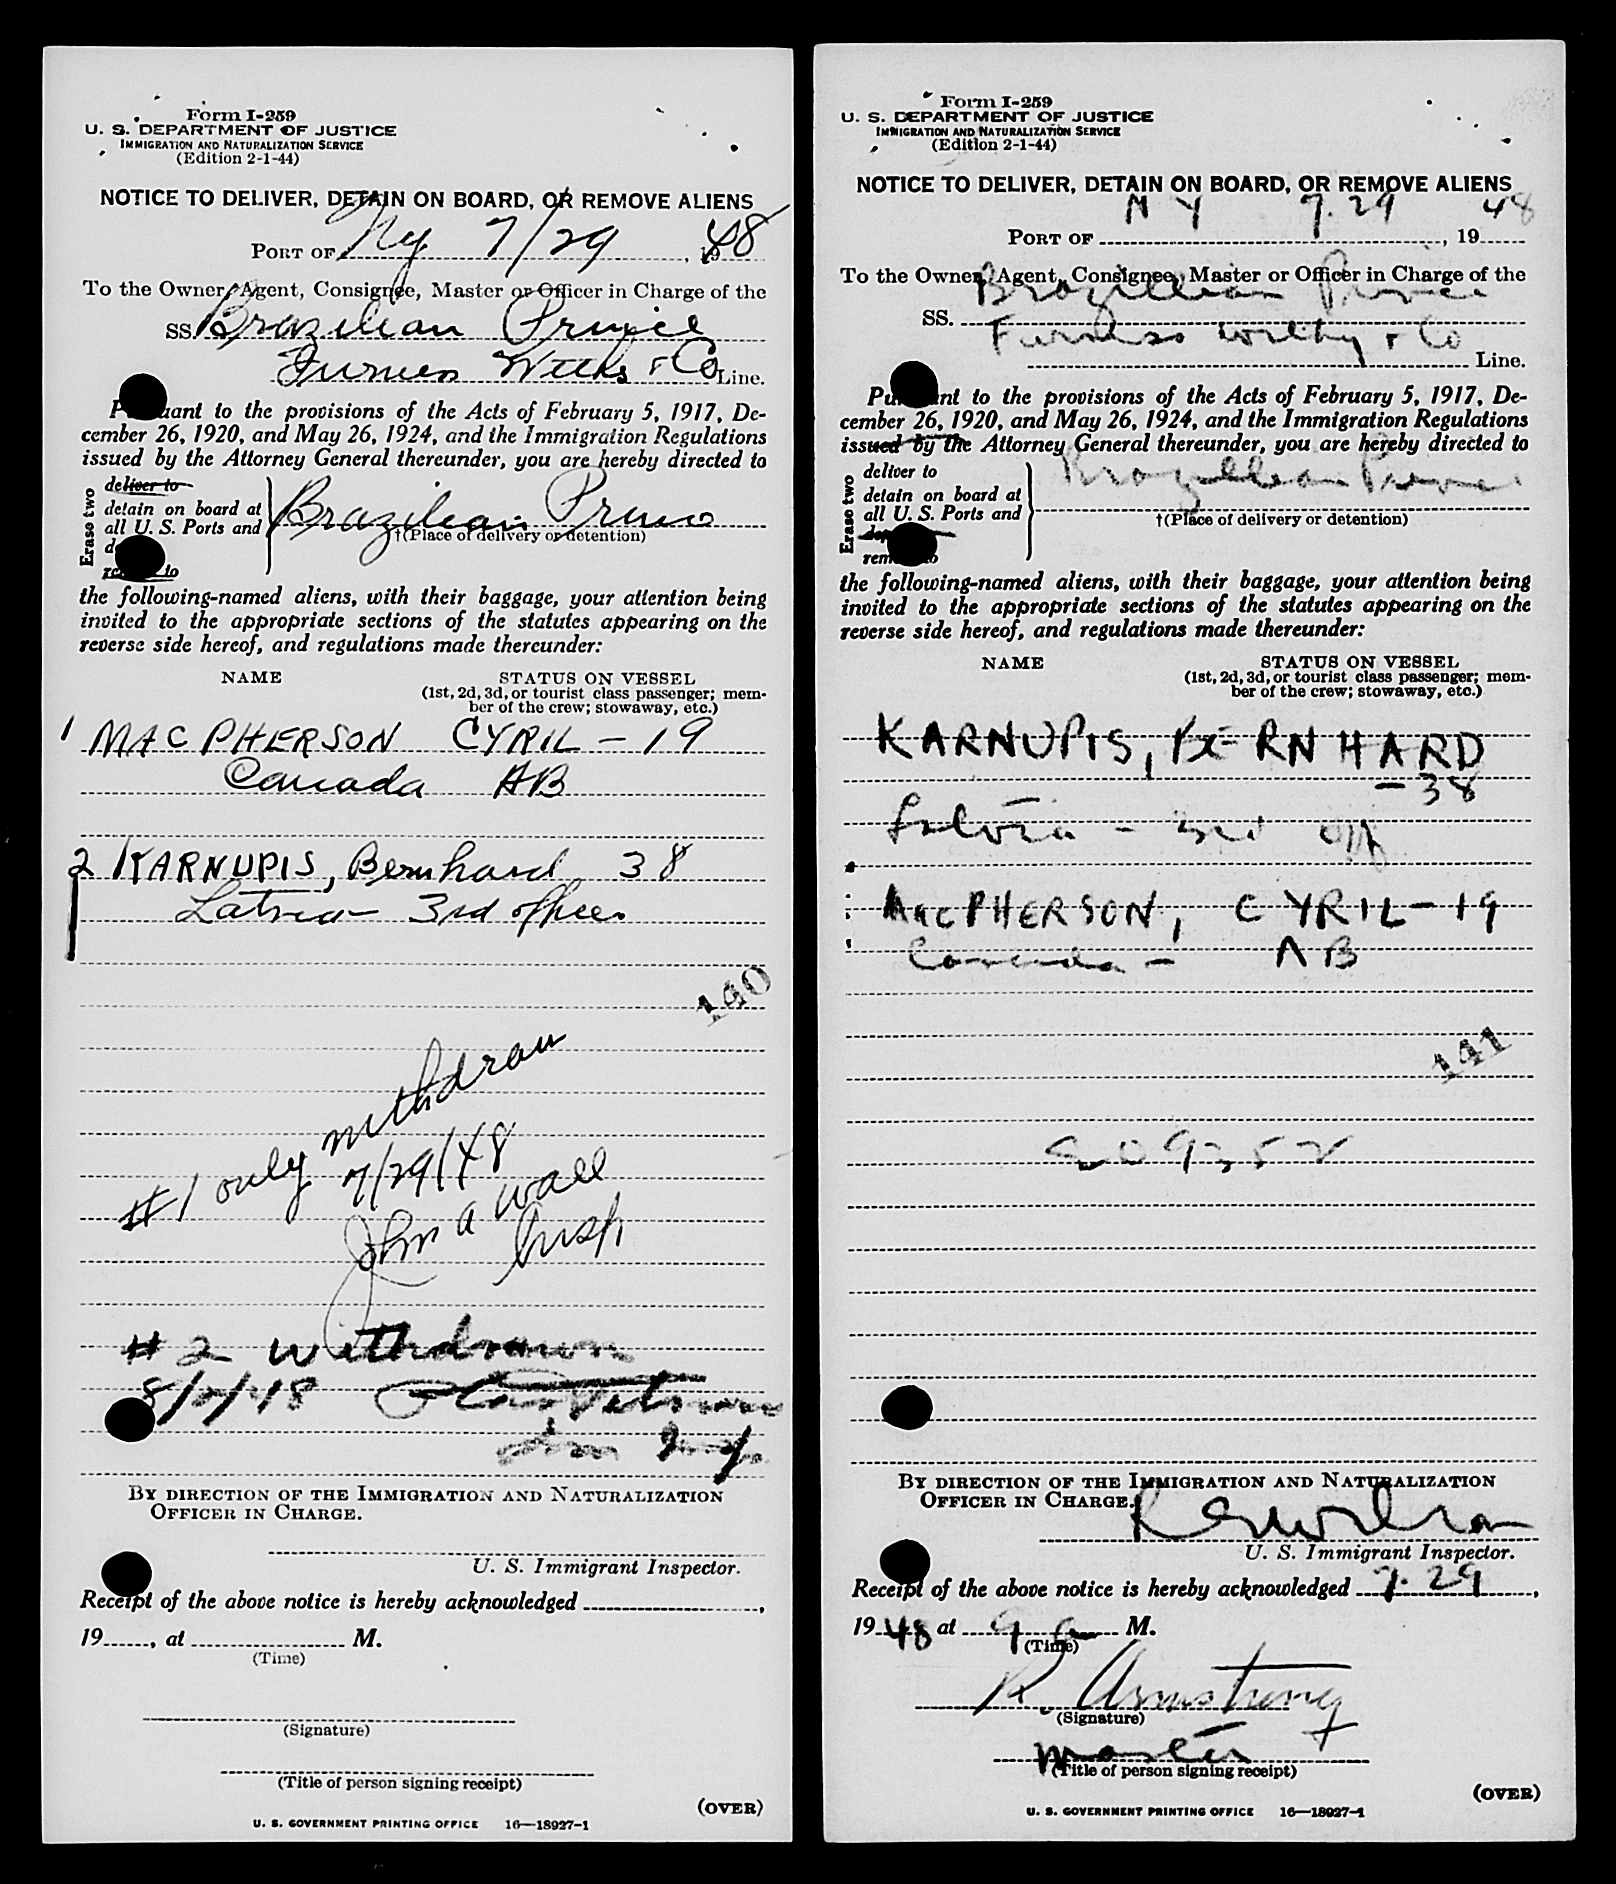 Form I-259
U. S. DEPARTMENT OF JUSTICE
IMMIGRATION AND NATURALIZATION SERVICE
(Edition 2-1-44)
NOTICE TO DELIVER, DETAIN ON BOARD, OR REMOVE ALIENS
PORT OF Ny 7/29, 1948
To the Owner, Agent, Consignee, Master or Officer in Charge of the
SS. Brazilian Prince
Furness & Co Line.
Pursuant to the provisions of the Acts of February 5, 1917, De-
cember 26, 1920, and May 26, 1924, and the Immigration Regulations
issued by the Attorney General thereunder, you are hereby directed to
Erase two
deliver to
detain on board at
all U. S. Ports and
remove to
Brazilian Prince
†(Place of delivery or detention)
the following-named aliens, with their baggage, your attention being
invited to the appropriate sections of the statutes appearing on the
reverse side hereof, and regulations made thereunder:
NAME STATUS ON VESSEL
(1st, 2d, 3d, or tourist class passenger; mem-
ber of the crew; stowaway, etc.)
1 MACPHERSON CYRIL - 19
Canada AB
2 KARNUPIS, Bernhard 38
Latvia - 3rd officer
140
#1 only withdrawn
7/29/48
John A Wall
#2 Withdrawn
8/2/48
Imm Insp.
BY DIRECTION OF THE IMMIGRATION AND NATURALIZATION
OFFICER IN CHARGE.
U. S. Immigrant Inspector.
Receipt of the above notice is hereby acknowledged ,
19 , at M.
(Time)
(Signature)
(Title of person signing receipt)
(OVER)
U. S. GOVERNMENT PRINTING OFFICE 16—18927-1
Form I-259
U. S. DEPARTMENT OF JUSTICE
IMMIGRATION AND NATURALIZATION SERVICE
(Edition 2-1-44)
NOTICE TO DELIVER, DETAIN ON BOARD, OR REMOVE ALIENS
PORT OF N Y 7.29, 1948
To the Owner, Agent, Consignee, Master or Officer in Charge of the
SS. Brazillian Prince
Furness Withy & Co Line.
Pursuant to the provisions of the Acts of February 5, 1917, De-
cember 26, 1920, and May 26, 1924, and the Immigration Regulations
issued by the Attorney General thereunder, you are hereby directed to
Erase two
deliver to
detain on board at
all U. S. Ports and
remove to
Brazillian Prince
†(Place of delivery or detention)
the following-named aliens, with their baggage, your attention being
invited to the appropriate sections of the statutes appearing on the
reverse side hereof, and regulations made thereunder:
NAME STATUS ON VESSEL
(1st, 2d, 3d, or tourist class passenger; mem-
ber of the crew; stowaway, etc.)
KARNUPIS, BERNHARD
- 38
Latvia - 3rd off
MACPHERSON, CYRIL - 19
Canada - AB
141
BY DIRECTION OF THE IMMIGRATION AND NATURALIZATION
OFFICER IN CHARGE.
U. S. Immigrant Inspector.
Receipt of the above notice is hereby acknowledged 7.29,
1948 at 9 a M.
(Time)
R. Armstrong
(Signature)
master
(Title of person signing receipt)
(OVER)
U. S. GOVERNMENT PRINTING OFFICE 16—18927-1